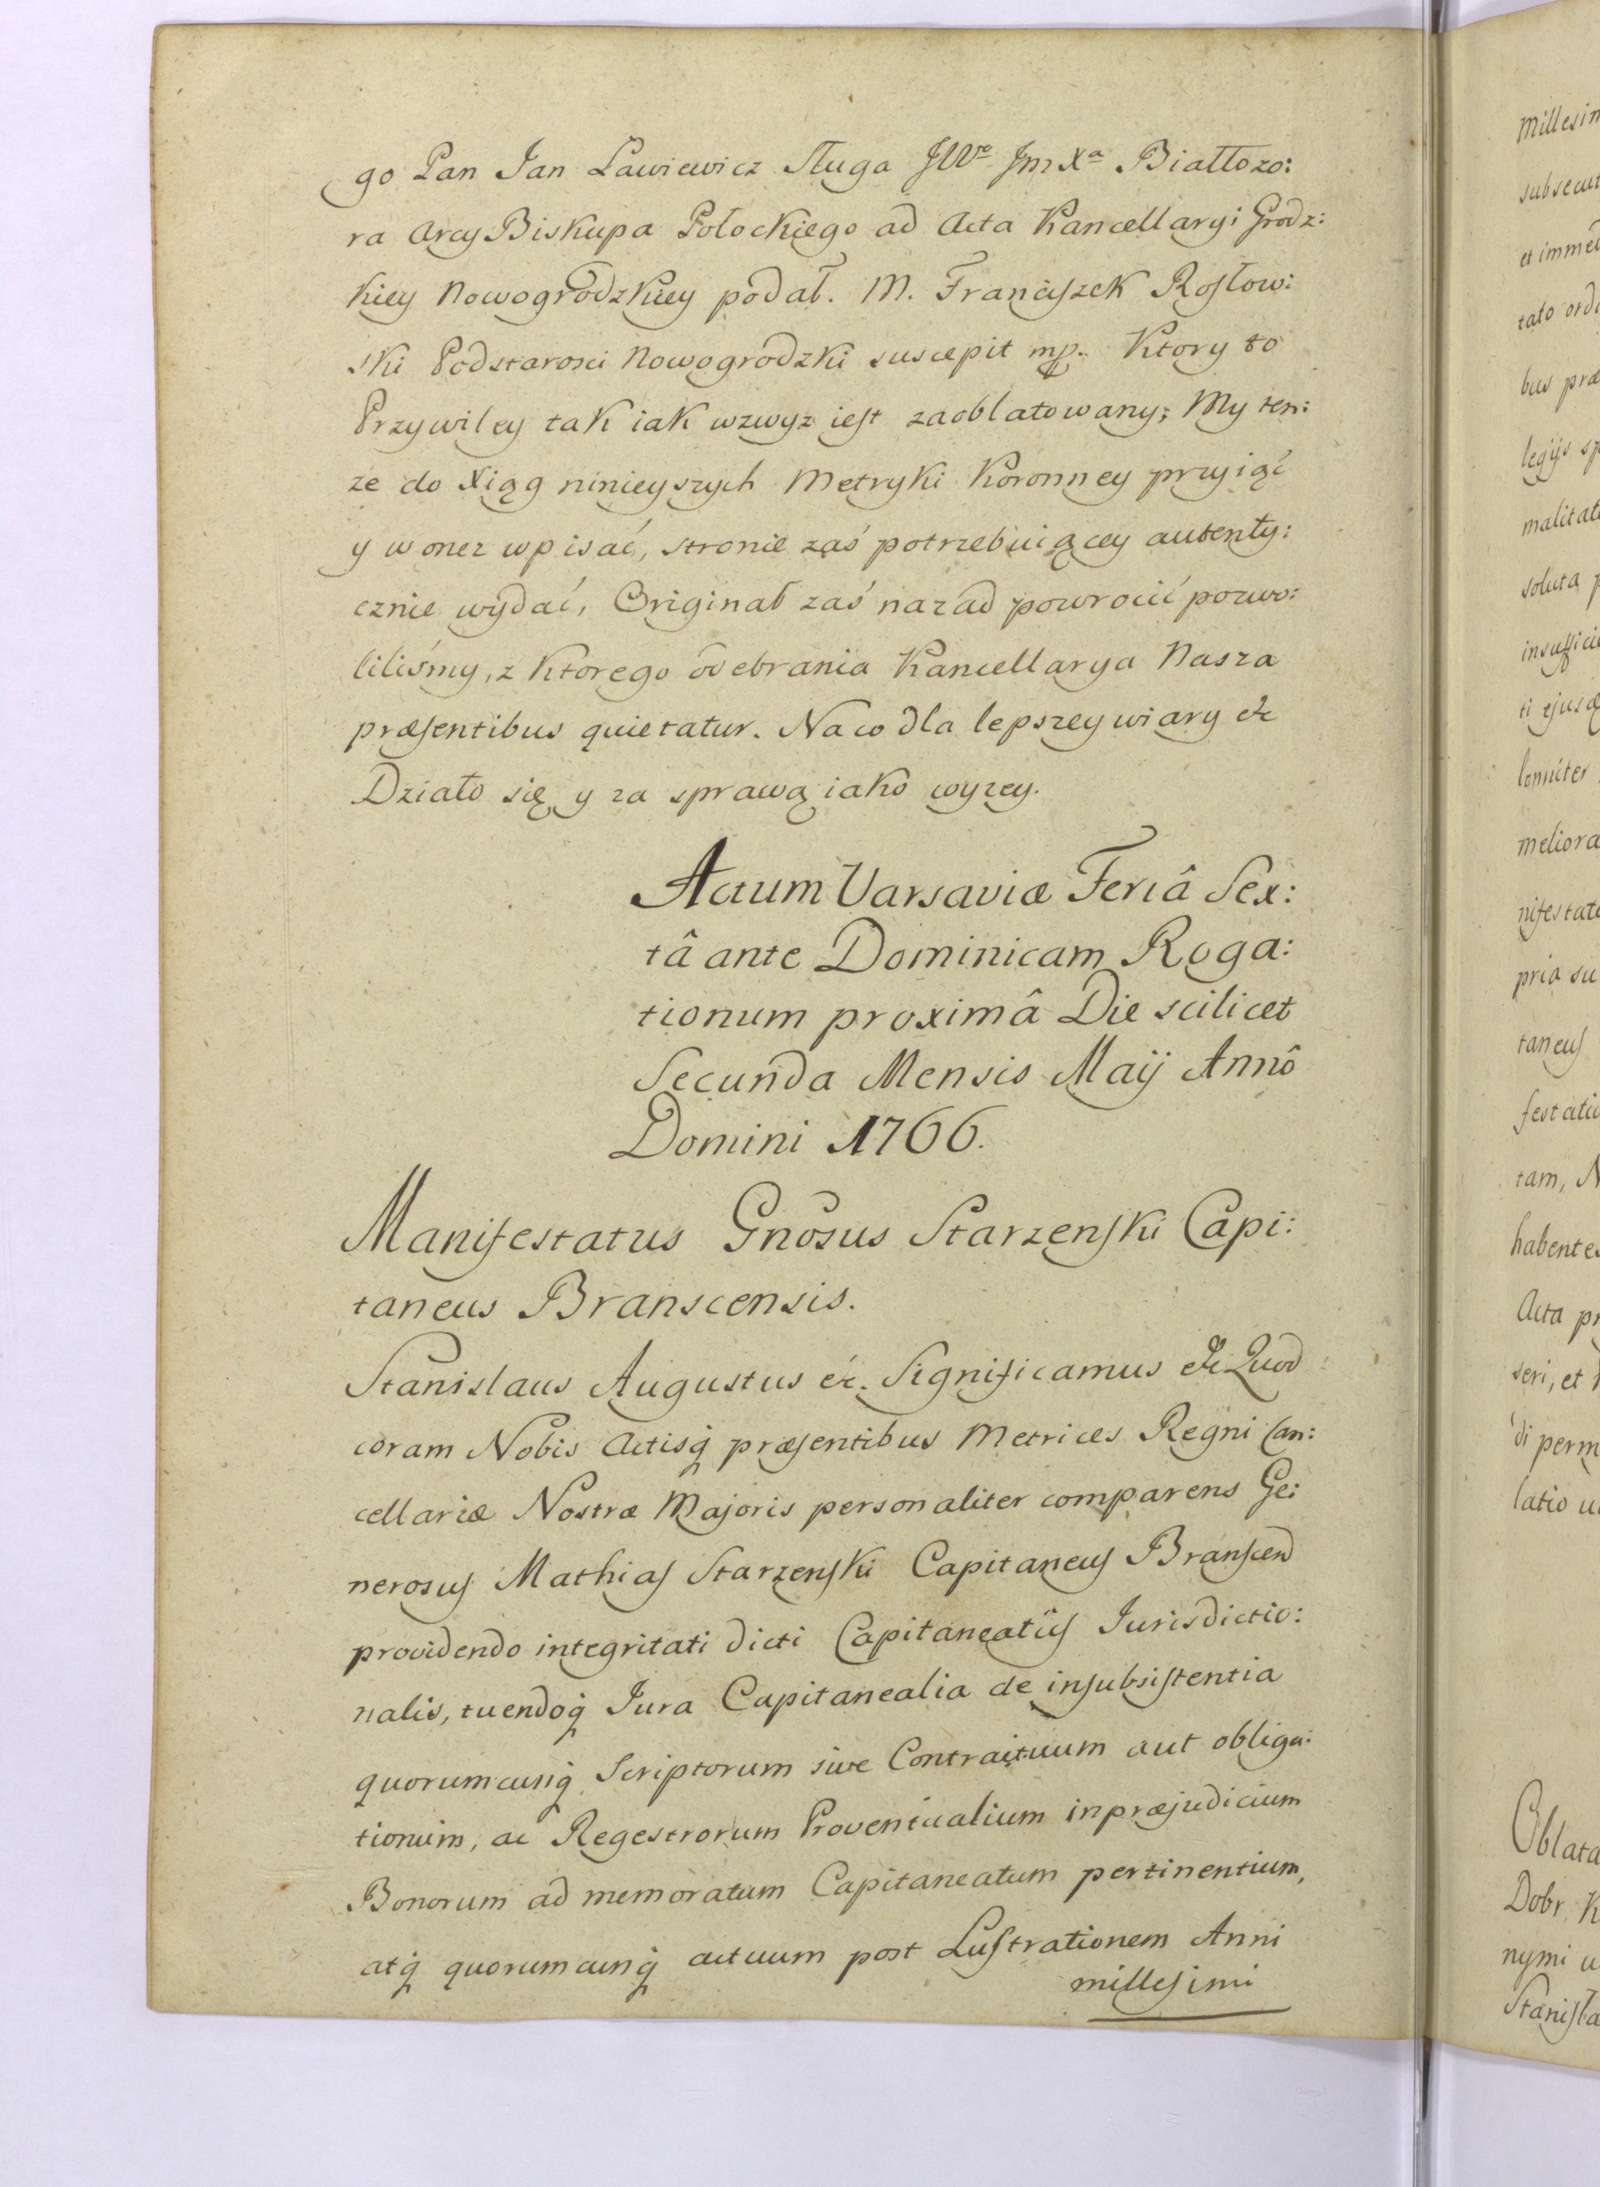 go Pan Jan Ławiewicz Sługa JWo JmXa Białłozo:
ra Arcy Biskupa Połockiego ad Acta Kancellaryi Grodz:
kiey Nowogrodzkiey podał. M. Franciszek Rosłow:
ski Podstarosci Nowogrodzki suscepit mp. Ktory to
Przywiley tak iak wzwyz iest zaoblatowany; My ten:
ze do Xiąg ninieyszych Metryki Koronney przyiąć
y w onez wpisać, stronie zaś potrzebuiącey autenty:
cznie wydać, Originał zaś nazad powrocić pozwo:
liliśmy, z ktorego odebrania Kancellarya Nasza
præsentibus quietatur. Na co dla lepszey wiary &c
Działo się y za sprawą iako wyzey.
Actum Varsaviæ Feriâ Sex:
tâ ante Dominicam Roga:
tionum proximâ Die scilicet
Secunda Mensis Maij Annô
Domini 1766.
Manifestatus Gnosus Starzenski Capi:
taneus Branscensis.
Stanislaus Augustus &c. Significamus &c Quod
coram Nobis Actisq præsentibus Metrices Regni Can:
cellariæ Nostræ Majoris personaliter comparens Ge:
nerosus Mathias Starzenski Capitaneus Branscen
providendo integritati dicti Capitaneatûs Jurisdictio:
nalis, tuendoq Jura Capitanealia de insubsistentia
quorumcunq Scriptorum sive Contractuum aut obliga:
tionum, ac Regestrorum Proventualium in præjudicium
Bonorum ad memoratum Capitaneatum pertinentium,
atq quorumcunq actuum post Lustrationem Anni
millesimi
millesim
subsecut
et immed
tato ord
bus præ
legijs sp
malitat
soluta p
insuffici
ti ejusd
lomiter
meliora
nifestat
pria su
taneus
festatio
tam, N
habentes
Acta pr
seri, et
di perm
latio
Oblata
Dobr K
nymi
Stanisła